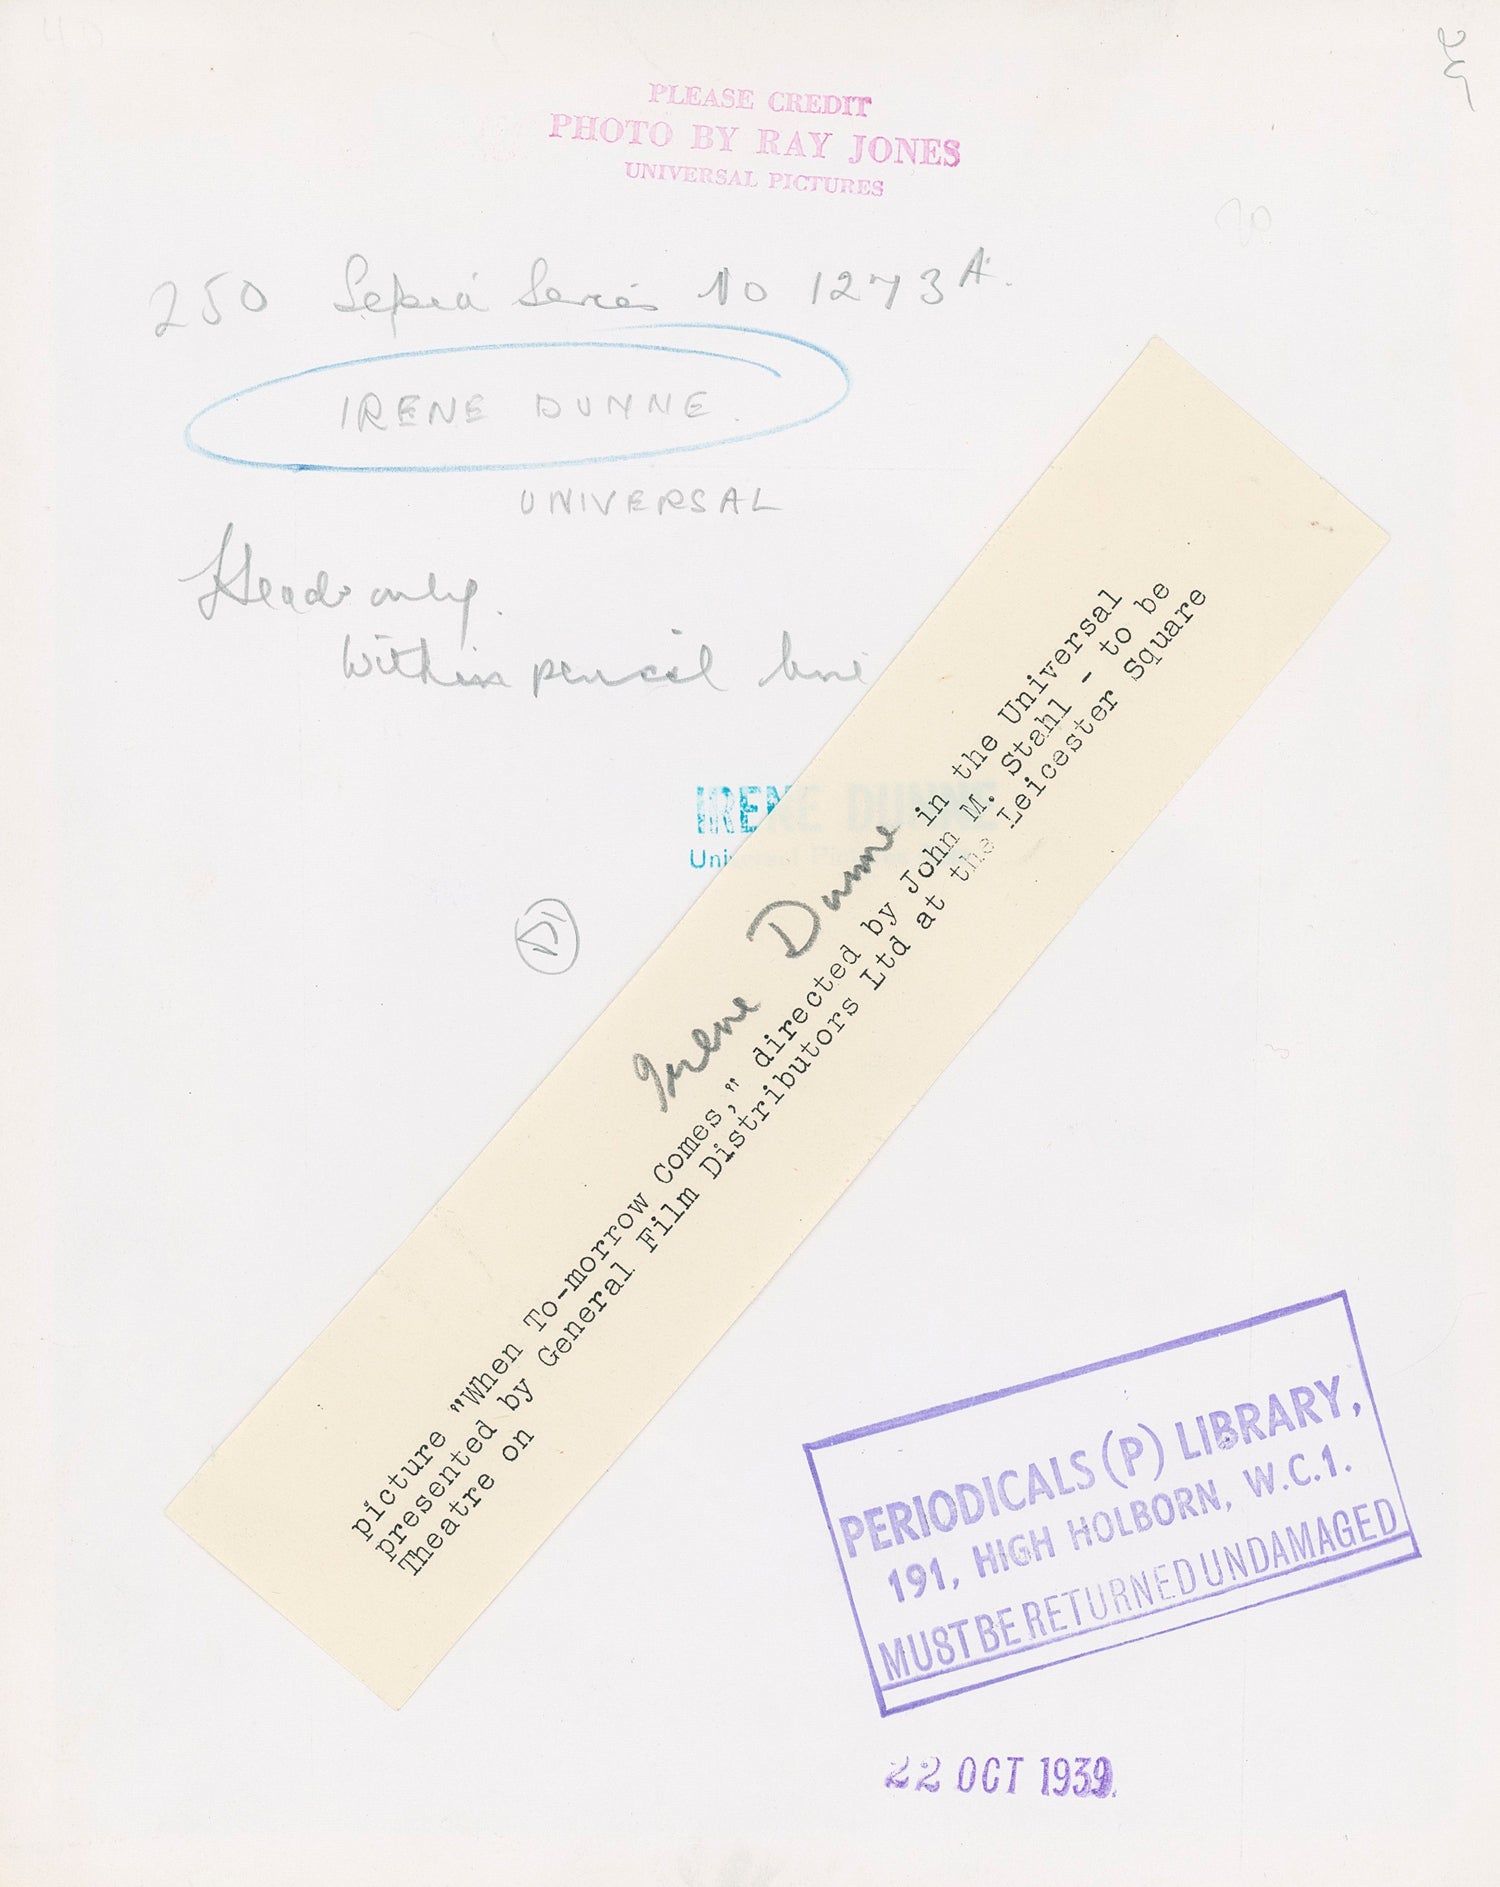 PLEASE CREDIT
PHOTO BY RAY JONES
UNIVERSAL PICTURES
250 Sepia Series No 1273A.
IRENE DUNNE.
UNIVERSAL
Heads only.
Within pencil line
IRENE DUNNE
Universal
Irene Dunne in the Universal
picture "When To-morrow Comes," directed by John M. Stahl - to be
presented by General Film Distributors Ltd at the Leicester Square
Theatre on
PERIODICALS (P) LIBRARY,
191, HIGH HOLBORN, W.C.1.
MUST BE RETURNED UNDAMAGED
22 OCT 1939.